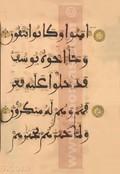 امنوا وكانوا يتقون
وجا اخوة يوسف
فدخلوا عليه فعر
فهم وهم له منكرون
ولما جهزهم بجهزهم